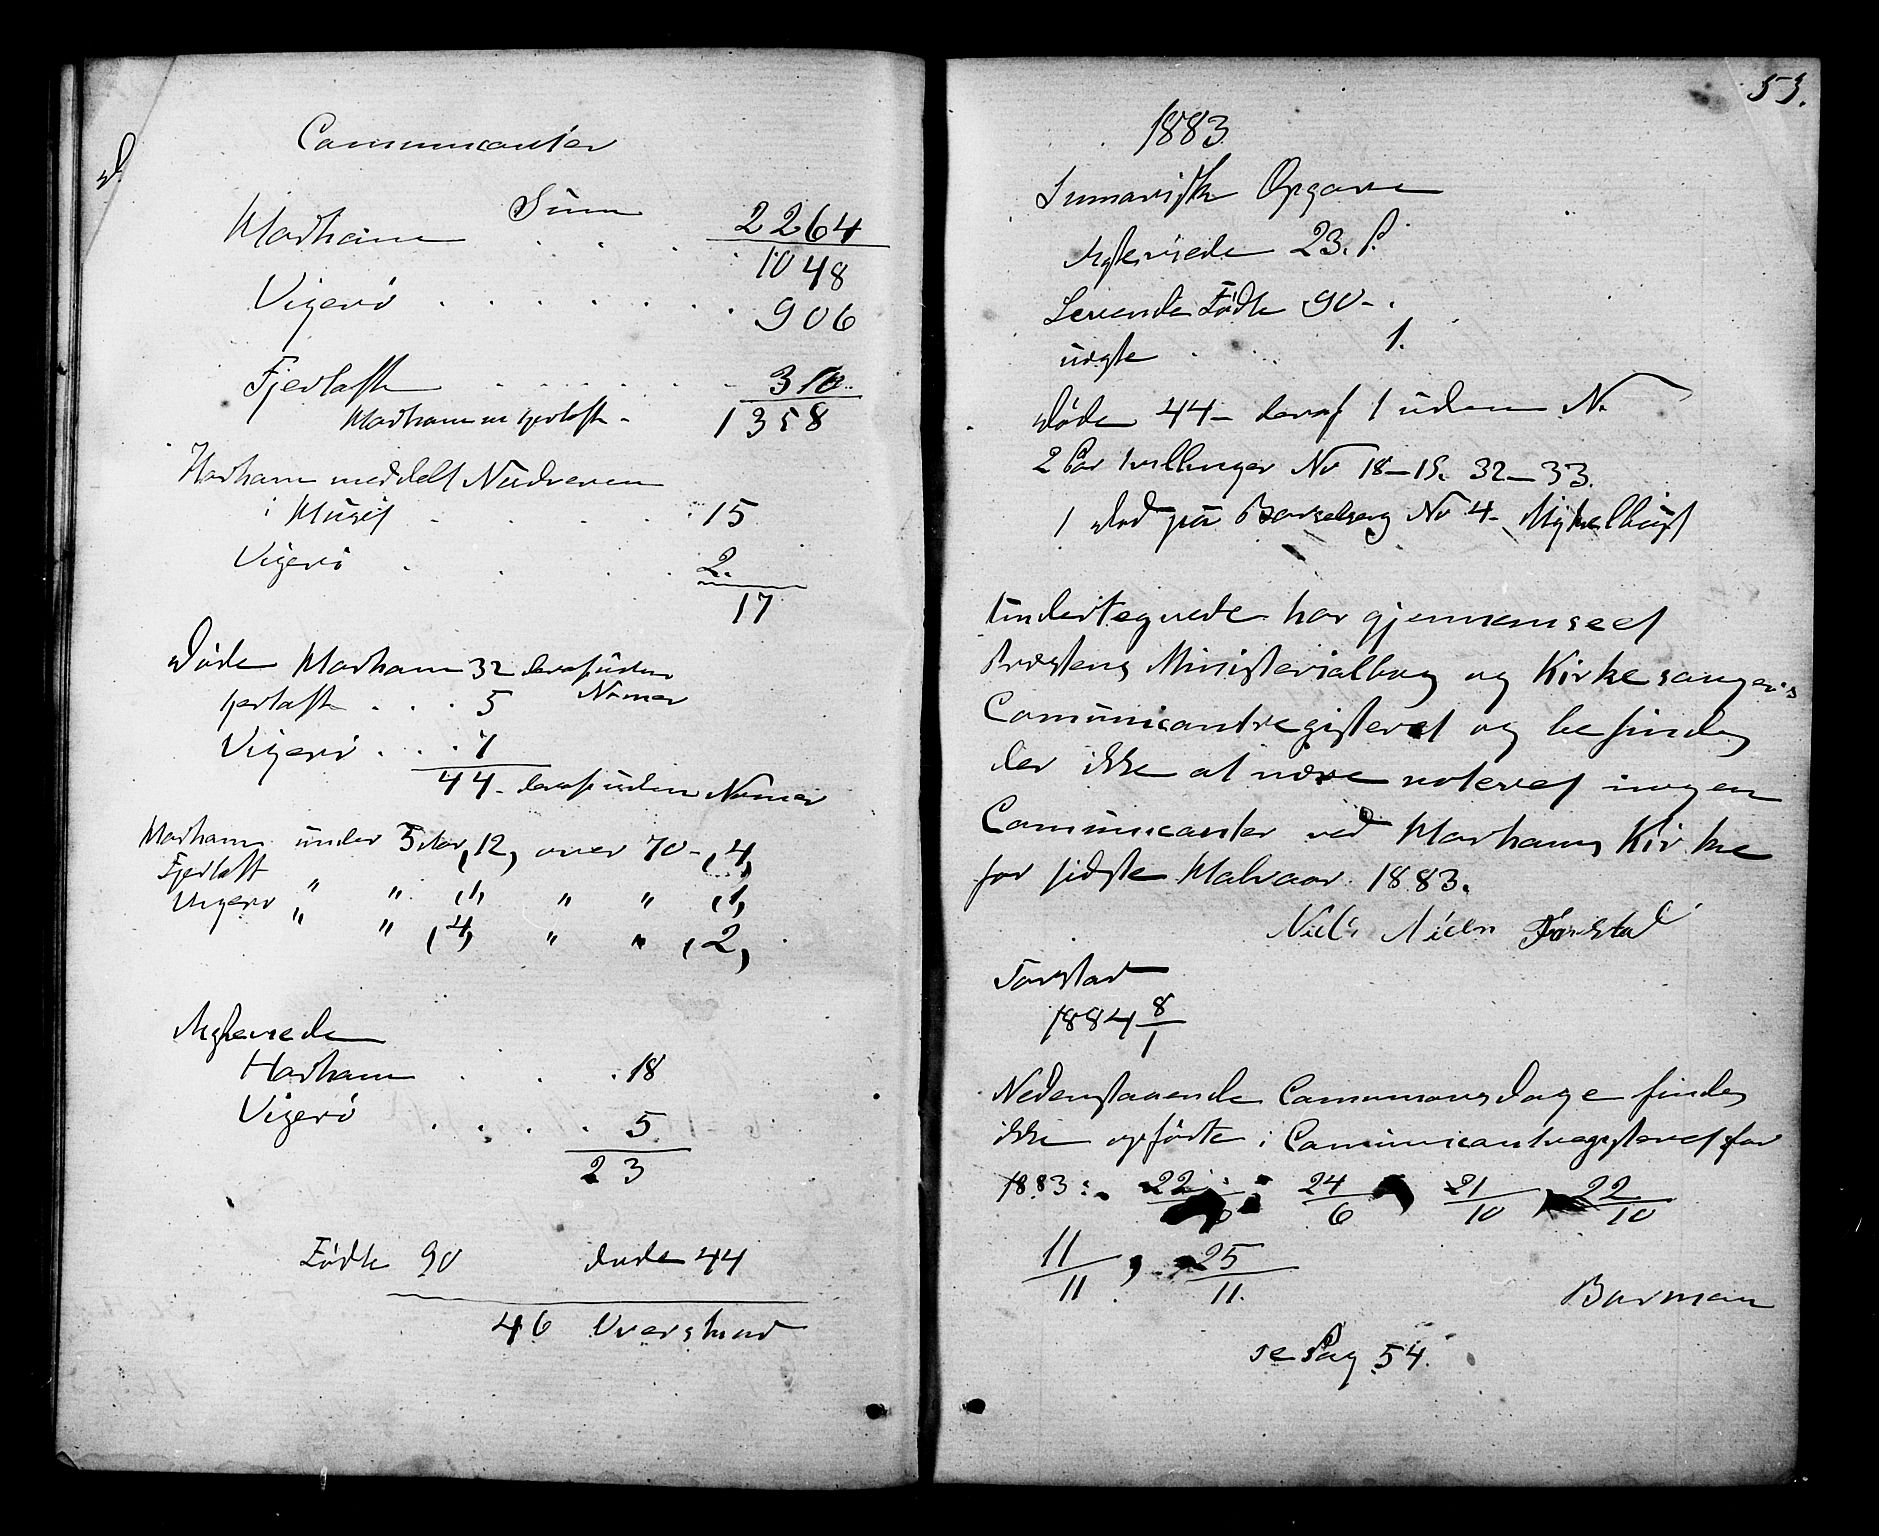 Communicanter
Sum 2264
Harham . . . 1048
Vigerö . . . . . . . 906
Fjertoft . . . . . . 310
Harham m fjertoft - 1358
Harham meddelt Nadveren
i Huset . . . . 15
Vigerö . . . . 2.
17
Döde Harham 32 deraf 1 uden Nomer
fjertoft . . . 5
Vigerö . . . 7
44 - deraf 1 uden Nomer
Harham under 5 Aar (12) over 70 - (4)
Fjertoft " " (1) " " (1)
Vigerö " " (4) " " (2)
Ægteviede
Harham . . . 18
Vigerö . . . . 5
23
Födte 90 døde 44
46 Overskud
53.
1883
Sumarisk Opgave
Ægteviede 23. P.
Levende Födte 90 -
uægte . . . 1.
Døde 44 - deraf 1 uden N.
2 Par tvillinger No 18-19. 32-33.
1 död på Barselseng No 4 - Myklebust
Undertegnede har gjennemseet
Præstens Ministerialbog og Kirkesangers
Comunicantregisteret og befindes
der ikke at være noteret nogen
Comunicanter ved Harhams Kirke
for sidste Halvaar 1883.
Niels Nielsn Tarstad
Tarstad
1884 8/1
Nedenstaaende Communionsdage findes
ikke opförte i Comunicantregisteret for
1883: 22/6 24/6, 21/10, 22/10
11/11, 25/11.
Barman
se Pag 54.